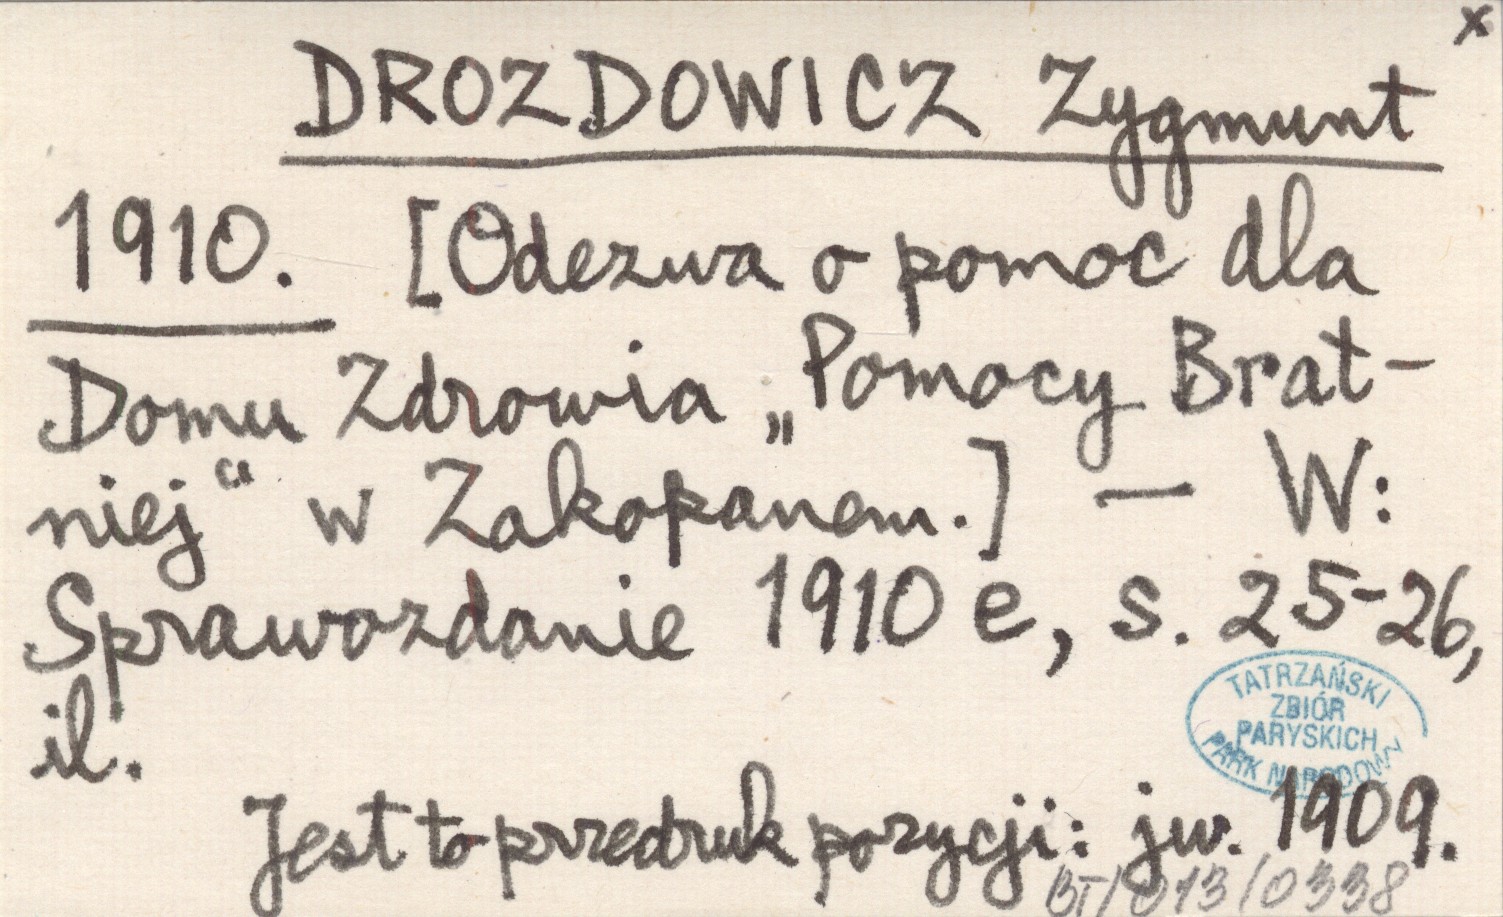 x
DROZDOWICZ Zygmunt
1910. [Odezwa o pomoc dla
Domu Zdrowia „Pomocy Brat-
niej" w Zakopanem.] — W:
Sprawozdanie 1910 e, s. 25-26,
il.
TATRZAŃSKI
ZBIÓR
PARYSKICH
PARK NARODOWY
Jest to przedruk pozycji: jw. 1909.
BT/013/0338